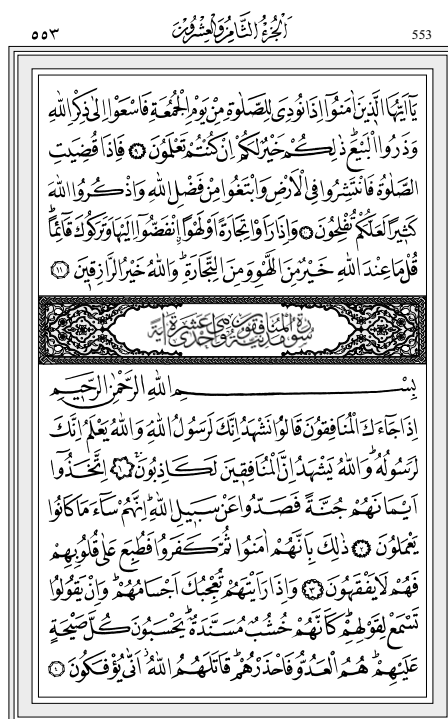 ٥٥٣ الجزء الثامن والعشرون 553
يَٓا اَيُّهَا الَّذ۪ينَ اٰمَنُٓوا اِذَا نُودِيَ لِلصَّلٰوةِ مِنْ يَوْمِ الْجُمُعَةِ فَاسْعَوْا اِلٰى ذِكْرِ اللّٰهِ
وَذَرُوا الْبَيْعَۜ ذٰلِكُمْ خَيْرٌ لَكُمْ اِنْ كُنْتُمْ تَعْلَمُونَ ٩ فَاِذَا قُضِيَتِ
الصَّلٰوةُ فَانْتَشِرُوا فِي الْاَرْضِ وَابْتَغُوا مِنْ فَضْلِ اللّٰهِ وَاذْكُرُوا اللّٰهَ
كَث۪يراً لَعَلَّكُمْ تُفْلِحُونَ ١٠ وَاِذَا رَاَوْا تِجَارَةً اَوْ لَهْواًۨ انْفَضُّٓوا اِلَيْهَا وَتَرَكُوكَ قَٓائِماًۜ
قُلْ مَا عِنْدَ اللّٰهِ خَيْرٌ مِنَ اللَّهْوِ وَمِنَ التِّجَارَةِۜ وَاللّٰهُ خَيْرُ الرَّازِق۪ينَ ١١
سورة المنافقون مدنية وهي احدى عشرة اية
بِسْمِ اللّٰهِ الرَّحْمٰنِ الرَّح۪يمِ
اِذَا جَٓاءَكَ الْمُنَافِقُونَ قَالُوا نَشْهَدُ اِنَّكَ لَرَسُولُ اللّٰهِۢ وَاللّٰهُ يَعْلَمُ اِنَّكَ
لَرَسُولُهُۜ وَاللّٰهُ يَشْهَدُ اِنَّ الْمُنَافِق۪ينَ لَكَاذِبُونَۚ ١ اِتَّخَذُٓوا
اَيْمَانَهُمْ جُنَّةً فَصَدُّوا عَنْ سَب۪يلِ اللّٰهِۜ اِنَّهُمْ سَٓاءَ مَا كَانُوا
يَعْمَلُونَ ٢ ذٰلِكَ بِاَنَّهُمْ اٰمَنُوا ثُمَّ كَفَرُوا فَطُبِعَ عَلٰى قُلُوبِهِمْ
فَهُمْ لَا يَفْقَهُونَ ٣ وَاِذَا رَاَيْتَهُمْ تُعْجِبُكَ اَجْسَامُهُمْۜ وَاِنْ يَقُولُوا
تَسْمَعْ لِقَوْلِهِمْۜ كَاَنَّهُمْ خُشُبٌ مُسَنَّدَةٌۜ يَحْسَبُونَ كُلَّ صَيْحَةٍ
عَلَيْهِمْۜ هُمُ الْعَدُوُّ فَاحْذَرْهُمْۜ قَاتَلَهُمُ اللّٰهُۘ اَنّٰى يُؤْفَكُونَ ٤